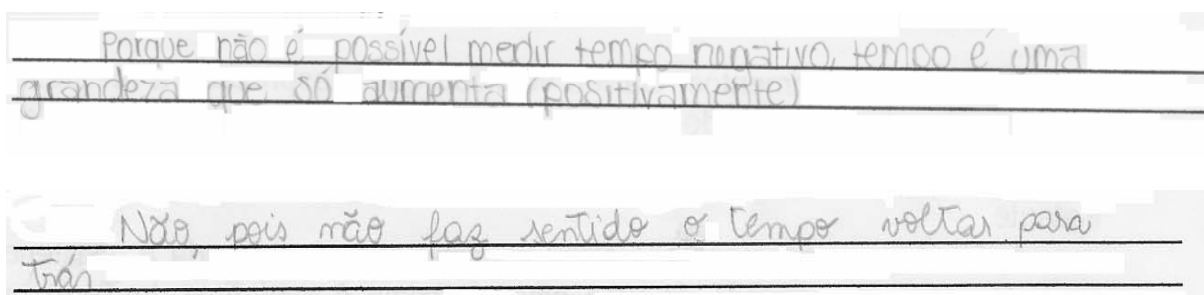 Porque não é possível medir tempo negativo, tempo é uma
grandeza que só aumenta (positivamente)
Não, pois não faz sentido o tempo voltar para
trás